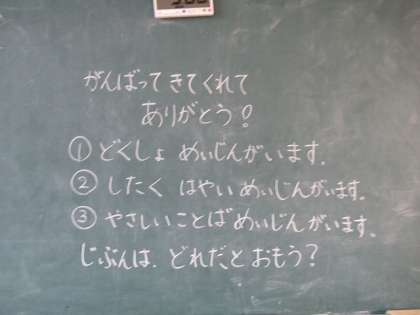 がんばってきてくれて
ありがとう!
① どくしょ めいじんがいます.
② したく はやいめいじんがいます.
③ やさしいことばめいじんがいます.
じぶんは. どれだとおもう?